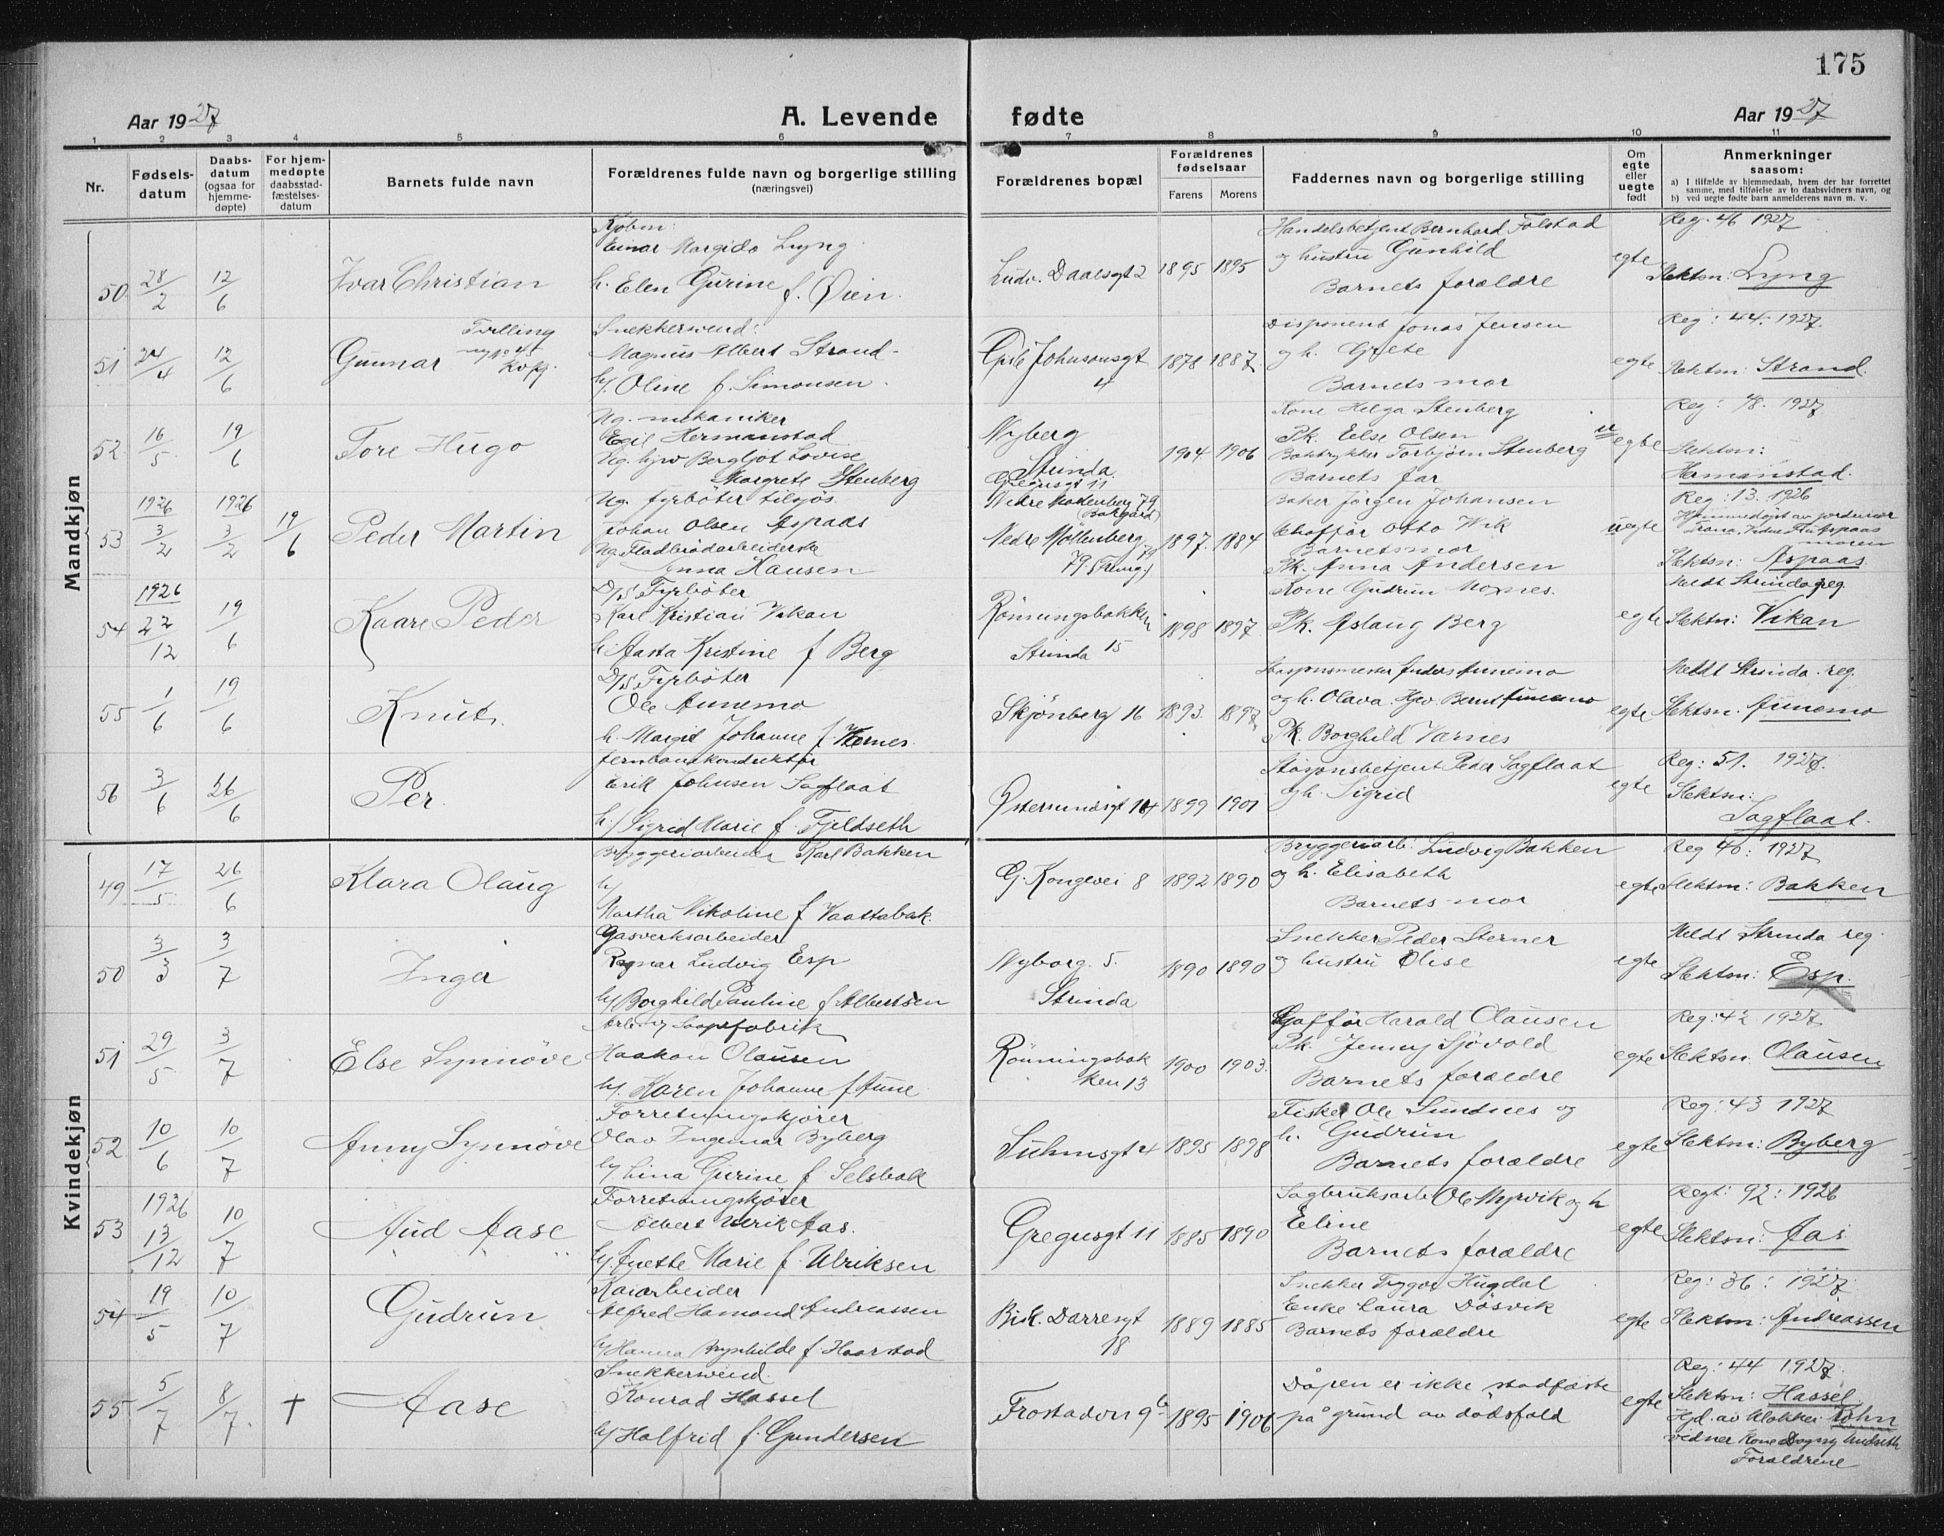 175
Aar 1927
A. Levende fødte
Aar 1927
1 2 3 4 5 6 7 8 9 10 11
Nr.
Fødsels-datum
Daabs-datum (ogsaa for hjemme-døpte)
For hjem-medøpte daabsstad-fæstelses-datum
Barnets fulde navn
Forældrenes fulde navn og borgerlige stilling (næringsvei)
Forældrenes bopæl
Forældrenes fødselsaar
Farens Morens
Faddernes navn og borgerlige stilling
Om egte eller uegte født
Anmerkninger saasom:
a) I tilfælde av hjemmedaab, hvem der har forrettet samme, med tilføielse av to daabsvidners navn, og
b) ved uegte fødte barn anmelderens navn m. v.
Mandkjøn
50 28/2 12/6 Ivar Christian
Kjøbm:
Einar Margido Lyng
h. Elen Gurine f. Øien.
Ludv. Daaesgt 2 1895 1895
Handelsbetjent Bernhard Folstad
og hustru Gunhild
Barnets forældre
egte
Reg. 46 1927
Slektsn: Lyng
51 24/4 12/6 Gunnar Tvilling
Snekkersvend:
Magnus Albert Strand
h/ Oline f. Simonsen.
Gisle Johnsonsgt 4 1878 1887
Disponent Jonas Jensen
og h. Grete
Barnets mor
egte
Reg: 44. 1927.
Slektsn: Strand.
52 16/5 19/6 Tore Hugo
Ug. mekaniker
Egil Hermanstad
Ug. hjv Bergljot Lovise
Margrete Stenberg
Nyberg
Strinda
Gregusgt 11
1904. 1906
Kone Helga Stenberg
Pk. Else Olsen
Boktrykker Torbjørn Stenberg
Barnets far
uegte
Reg: 48. 1927
Slektsn:
Hermanstad.
53 1926 3/2 1926 3/2 19/6 Peder Martin
Ug. fyrbøter tilsjøs
Johan Olsen Aspaas
Ug. Fladbrødarbeiderske
Anna Hansen
Nedre Møllenberg 79 (Bakgård)
Nedre Møllenberg 79
1897. 1884
Baker Jørgen Johansen
Chaffør Otto Wik
Barnets mor
Pk. Anna Andersen
uegte
Reg: 13. 1926
Hjemmedøpt av jordmor
moren
Slektsn: Aspaas
54 1926 22/12 19/6 Kaare Peder
D/S Fyrbøter
Karl Kristian Vikan
h. Aasta Kristine f Berg
Rønningsbakken 15
Strinda
1898 1897
Kone Gudrun Moxnes.
Pk. Aslaug Berg
egte
Meldt Strinda reg.
Slektsn: Vikan
55 1/6 19/6 Knut.
D/S Fyrbøter
Ole Aunemo
h. Margit Johanne f. Vernes.
Skjønberg 16 1893. 1897
Stasjonsmester Anders Aunemo
og h. Olava. Hjv Bernt Aunemo
Pk. Borghild Varnes
egte
Meldt Strinda. reg.
Slektsn. Aunemo
56 3/6 26/6 Per.
Jernbanekonduktør
Erik Johnsen Sagflaat
h./ Sigrid Marie f. Fjeldseth
Østersundsgt 14 1899 1901
Stasjonsbetjent Peder Sagflaat
og h. Sigrid
egte
Reg: 51. 1927.
Slektsn:
Sagflaat.
Kvindekjøn
49 17/5 26/6 Klara Olaug
Bryggeriarbeider Karl Bakken
h/
Martha Nikoline f Vaattabak.
G. Kongevei 8 1892 1890
Bryggeriarb: Ludvig Bakken
og h. Elisabeth
Barnets mor
egte
Reg 40: 1927
Slektsn: Bakken
50 3/3 3/7 Inger
Gasverksarbeider
Ragnar Ludvig Esp
h/ Borghild Pauline f. Albertsen
Nyborg. 5.
Strinda
1890 1890
Snekker Peder Sterner
og hustru Olise
egte
Meldt Strinda reg.
Slektsn: Esp.
51 29/5 3/7 Else Synnøve
Arb. v/ Saapefabrik
Haakon Olausen
h/ Karen Johanne f Aune.
Rønningsbakken 13 1900 1903.
Chaffør Harald Olausen
Pk. Jenny Sjøvold
Barnets forældre
egte
Reg: 42 1927
Slektsn. Olausen
52 10/6 10/7 Anny Synnøve
Forretningskjører
Olav Ingemar Byberg
h/ Lina Gurine f Selsbak
Suhmsgt 4 1895 1898
Fisker Ole Sundnes og
h. Gudrun
Barnets forældre
egte
Reg: 43 1927
Slektsn: Byberg
53 1926 13/12 10/7 Aud Aase
Forretningskjører
Albert Ulrik Aas.
h/ Anette Marie f. Ulriksen
Gregusgt 11 1885 1890
Sagbruksarb Ole Myrvik og h
Eline
Barnets forældre
egte
Regt: 92: 1926
Slektsn: Aas
54 19/5 10/7 Gudrun
Kaiarbeider
Alfred Hamond Andreassen
h/ Hanna Brynhilde f. Haarstad
Bisk. Darresgt 18 1889 1885
Snekker Trygve Hugdal
Enke Laura Døsvik
Barnets forældre
egte
Reg: 36: 1927
Slektsn: Andreassen
55 5/7 8/7 † Aase
Snekkersvend
Konrad Hassel
h/ Halfrid f. Gundersen
Frostadvn 9b 1895 1906
Døpen er ikke stadfæste
på grund av dødsfald
egte
Reg: 44 1927.
Slektsn: Hassel
Hjd. av klokker Røhn
vidner Kone Dagny Andseth
Forældrene